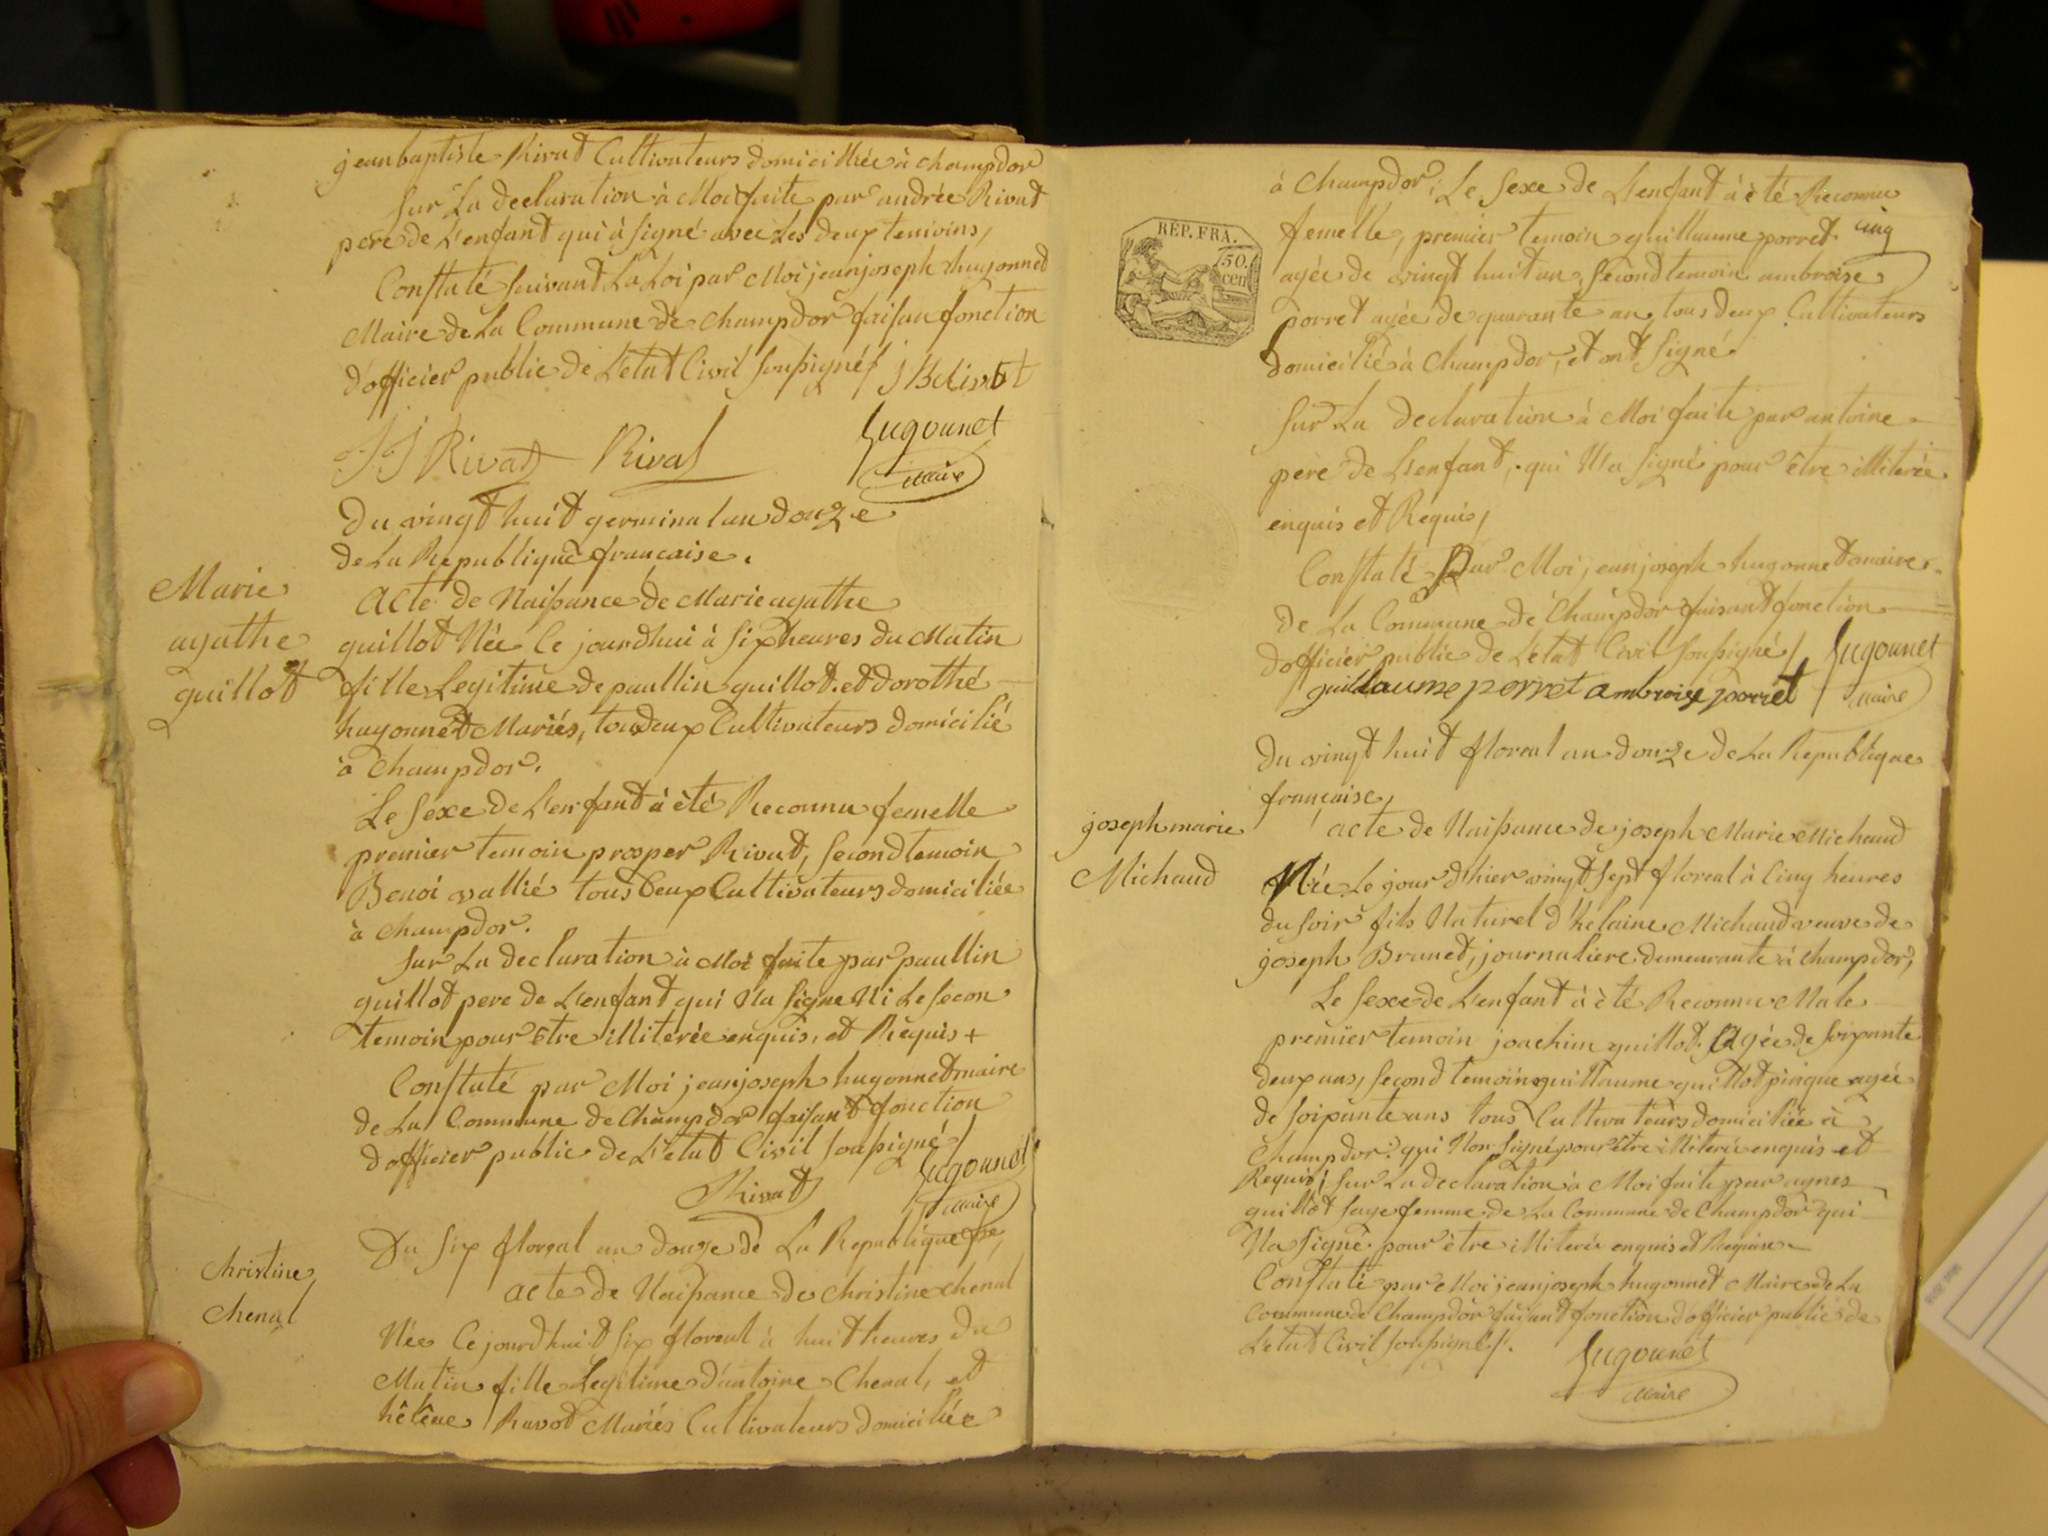 jeanbaptiste Rivat Cultivateurs domiciliée à champdor
Sur La declaration à Moi faite par andrée Rivat
pere de L'enfant qui à signé avec Les deux temoins,
Constaté Suivant La Loi par Moi jeanjoseph hugonnet
Maire de La Commune de champdor faisan fonction
d'officier public de L'etat Civil Soussigné/
JJ Rivat Rival hugounet
maire
Du vingt huit germinal an douze
de La Republique francaise.
Marie
agathe
guillot
Acte de Naissance de Marie agathe
guillot Née Ce jourdhui à Six heures du Matin
fille Legitime de paullin guillot et dorothé
hugonnet Mariés, tou deux Cultivateurs domicilié
à Champdor.
Le Sexe de L'enfant à èté Reconnu femelle
premier temoin prosper Rivat, Second temoin
Benoi vallié tous Deux Cultivateurs domiciliée
à champdor.
Sur La declaration à Moi faite par paullin
guillot pere de L'enfant qui Na Signe Ni Le Secon
temoin pour être illiterée enquis, et Requis +
Constaté par Moi jeanjoseph hugonnet maire
de La Commune de Champdor faisant fonction
d'officier public de L'etat Civil Soussigné/
Rivat hugounet
maire
Christine
Chenal
Du Six floreal an douze de La Republique fse,
acte de Naissance de Christine chenal
Née Ce jourdhuit Six floreal à huit heures du
Matin fille Legitime d'antoine Chenal, et
hélêne Ravot Mariés Cultivateurs domiciliée
à Champdor, Le Sexe de L'enfant à èté Reconnu
cinq
RÉP. FRA.
50.
cent
femelle, premier temoin guillaume porret
agée de vingt huit an, Second temoin ambroise
porret agée de quarante an, tous deux Cultivateurs
domicilié à Champdor, et ont Signé
Sur La declaration à Moi faite par antoine
pere de L'enfant, qui Na Signé pour être illiterée
enquis et Requis/
Constaté Par Moi jeanjoseph hugonnet maire
de La Commune de Champdor faisant fonction
d'officier public de L'etat Civil Soussigné/ hugounet
guillaume porret ambroise porret maire
du vingt huit floreal an douze de La Republique
française,
joseph marie
Michaud
acte de Naissance de joseph Marie Michaud
Née Le jour d'hier vingt Sept floreal à Cinq heures
du Soir fils Naturel d'helaine Michaud veuve de
joseph Brunet, journaliere demeurante à champdor,
Le Sexe de L'enfant à èté Reconnu Male
premier temoin joachim guillot Agée de Soixante
deux ans, Second temoin guillaume guillot pinque agée
de Soixante ans tous Cultivateurs domiciliée à
Champdor qui Non Signé pour être illiteré enquis et
Requis; Sur La declaration à Moi faite par agnes
guillot Sage femme de La Commune de Champdor qui
Na Signé pour être illiterée enquis et Requise
Constaté par Moi jeanjoseph hugonnet Maire de La
Commune de Champdor faisant fonction d'officier public de
L'etat Civil Soussigné/.
hugounet
maire